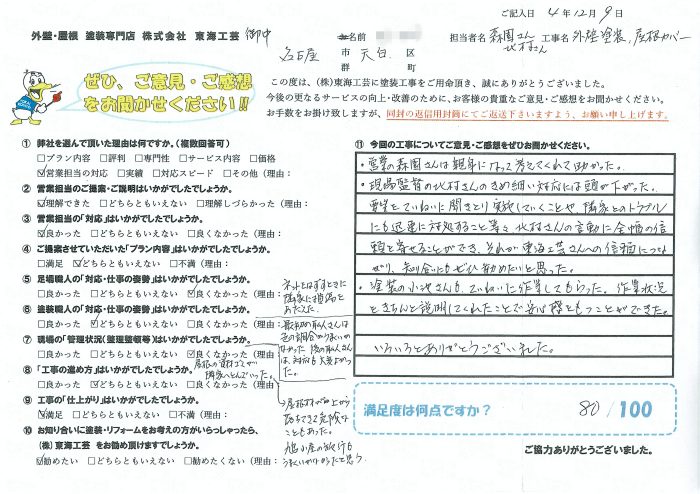 ご記入日 4年12月9日
外壁・屋根 塗装専門店 株式会社 東海工芸 御中
お名前
担当者名 森園さん 北村さん 工事名 外壁塗装、屋根カバー
名古屋 市 天白 区
郡 町
ぜひ、ご意見・ご感想
をお聞かせください!!
この度は、(株)東海工芸に塗装工事をご用命頂き、誠にありがとうございました。
今後の更なるサービスの向上・改善のために、お客様の貴重なご意見・ご感想をお聞かせください。
お手数をお掛け致しますが、同封の返信用封筒にてご返送下さいますよう、お願い申し上げます。
① 弊社を選んで頂いた理由は何ですか。(複数回答可)
□プラン内容 □評判 □専門性 □サービス内容 □価格
☑営業担当の対応 □実績 □対応スピード □その他(理由:
② 営業担当のご提案・ご説明はいかがでしたでしょうか。
☑理解できた □どちらともいえない □理解しづらかった(理由:
③ 営業担当の「対応」はいかがでしたでしょうか。
☑良かった □どちらともいえない □良くなかった(理由:
④ ご提案させていただいた「プラン内容」はいかがでしたでしょうか。
□満足 ☑どちらともいえない □不満(理由:
⑤ 足場職人の「対応・仕事の姿勢」はいかがでしたでしょうか。
□良かった □どちらともいえない ☑良くなかった(理由:
ネットをはずすときに
隣家に損傷を
あたえた。
⑥ 塗装職人の「対応・仕事の姿勢」はいかがでしたでしょうか。
□良かった ☑どちらともいえない □良くなかった(理由:
最初の職人さんは
色の調合がうまくいか
なかった 後の職人さん
は対応も大変よかっ
た。
⑦ 現場の「管理状況(整理整頓等)」はいかがでしたでしょうか。
□良かった □どちらともいえない ☑良くなかった(理由:
屋根の資材ゴミが
隣家へとんでいった。
⑧ 「工事の進め方」はいかがでしたでしょうか。
□良かった ☑どちらともいえない □良くなかった(理由:
⑨ 工事の「仕上がり」はいかがでしたでしょうか。
☑満足 □どちらともいえない □不満(理由:
→屋根材が上から
落ちてきて危険な
こともあった。
⑩ お知り合いに塗装・リフォームをお考えの方がいらっしゃったら、
(株)東海工芸 をお勧め頂けますでしょうか。
☑勧めたい □どちらともいえない □勧めたくない(理由:
⑪ 今回の工事についてご意見・ご感想をお聞かせください。
・営業の森園さんは親身になって考えてくれて助かった。
・現場監督の北村さんのきめ細い対応には頭が下がった。
要望をていねいに聞きとり実施していくことや、隣家とのトラブル
にも迅速に対処すること等々 北村さんの言動に全幅の信
頼を寄せることができ、それが東海工芸さんへの信頼につな
がり、知り合いにもぜひ勧めたいと思った。
・塗装の小池さんも、ていねいに作業してもらった。作業状況
をきちんと説明してくれたことで安心感をもつことができた。
いろいろとありがとうございました。
満足度は何点ですか? 80/100
ご協力ありがとうございました。